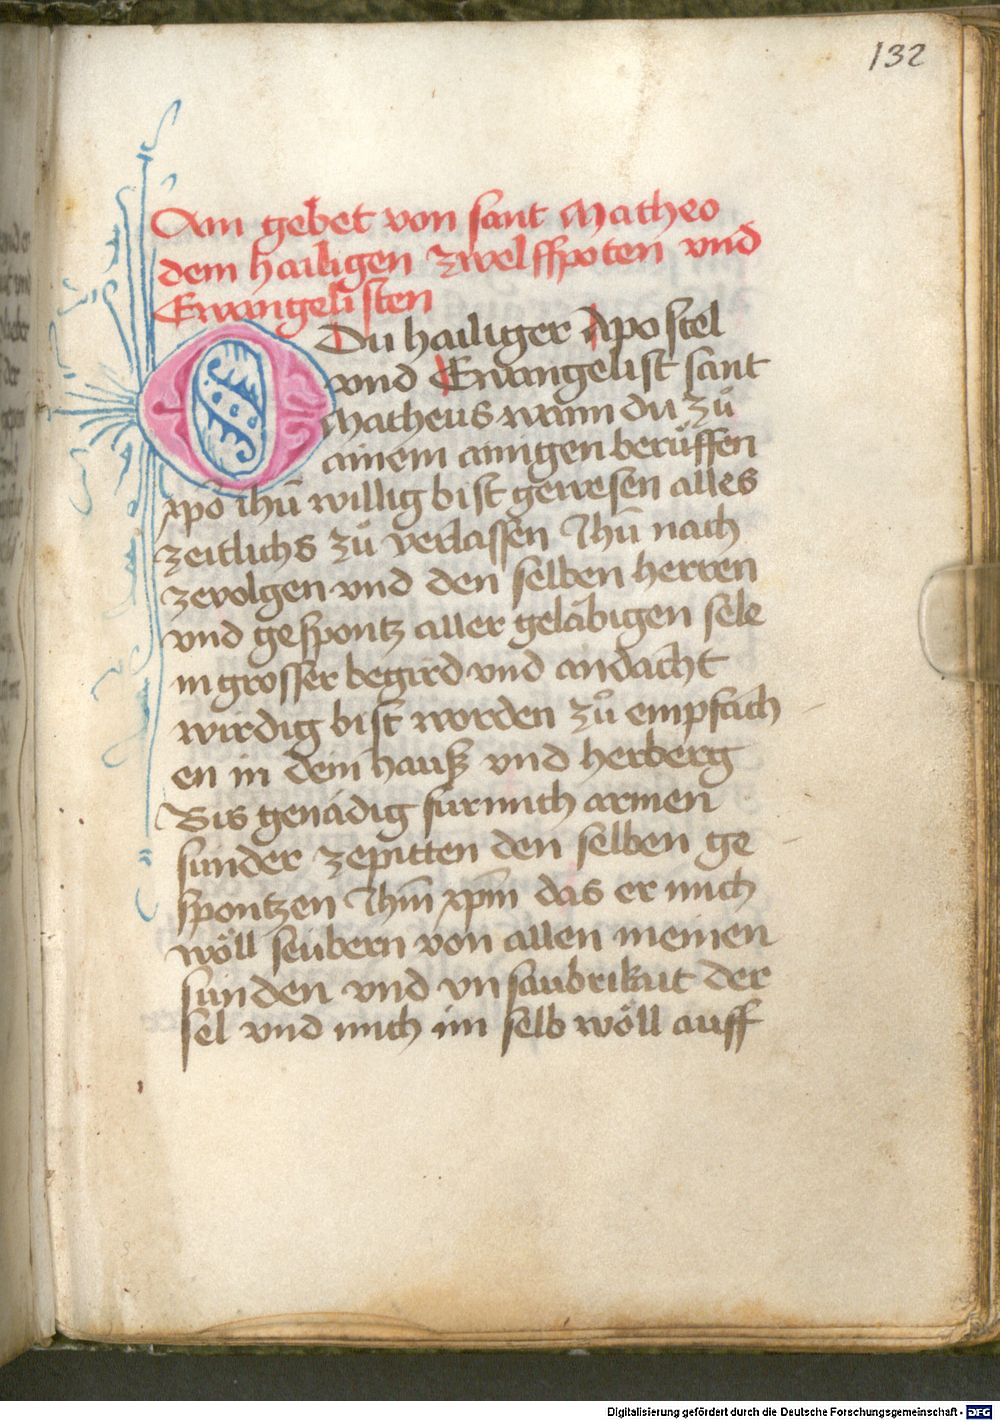 132
Ain gebet von sant Matheo
dem hailigen zwelffpoten vnd
Ewangelisten
O Du hailiger Apostel
vnd Ewangelist sant
Matheus wann du zů
ainem ainigen berüffen
xpō ihū willig bist gewesen alles
zeitlichs zů verlassen Jhū nach
zevolgen vnd den selben herren
vnd gespontz aller geläbigen sele
in grosser begird vnd andacht
wirdig bist worden zů empfach
en in dein hauß vnd herberg
Bis genädig fur mich armen
sunder zepitten den selben ge
spontzen Jhm̄ xpm̄ das er mich
wöll seübern von allen meinen
sunden vnd vnsaubrikait der
sel vnd mich im selb wöll auff
Digitalisierung gefördert durch die Deutsche Forschungsgemeinschaft - DFG